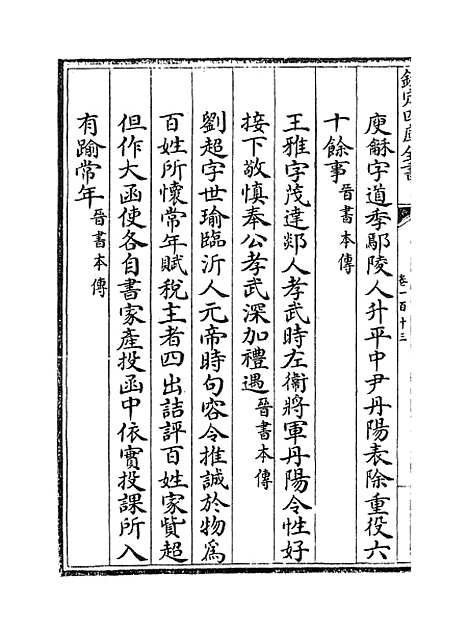 欽定四庫全書
卷一百十三
庾龢字道季鄢陵人升平中尹丹陽表除重役六
十餘事晉書本傳
王雅字茂達郯人孝武時左衛將軍丹陽令性好
接下敬慎奉公孝武深加禮遇晉書本傳
劉超字世瑜臨沂人元帝時句容令推誠於物為
百姓所懷常年賦稅主者四出詰評百姓家貲超
但作大函使各自書家產投函中依實投課所入
有踰常年晉書本傳